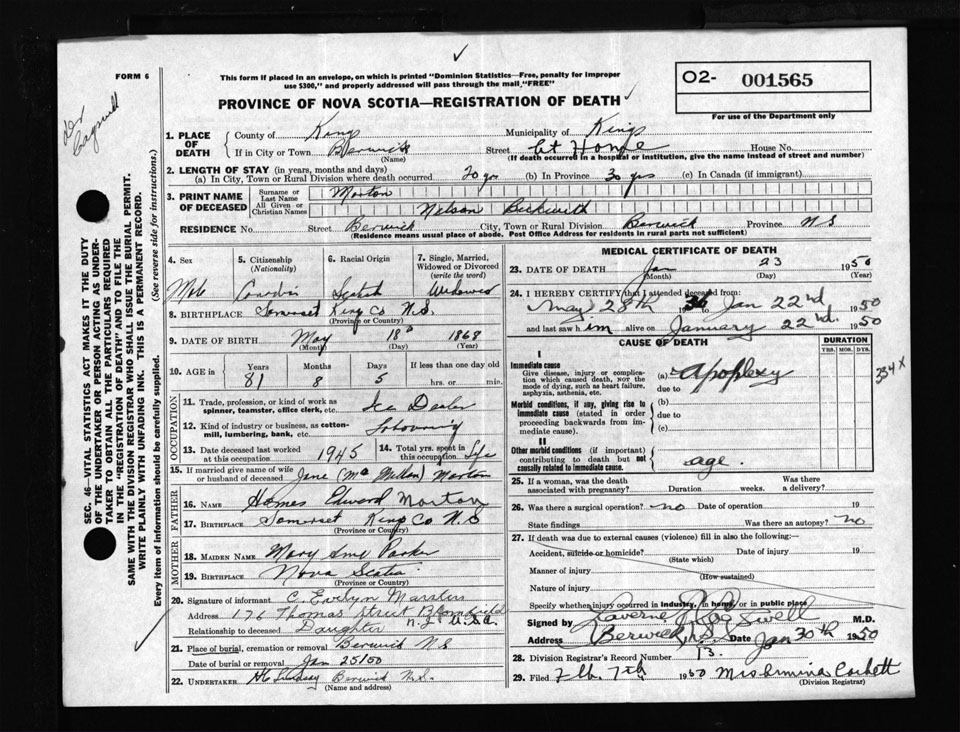 FORM 6
This form if placed in an envelope, on which is printed "Dominion Statistics—Free, penalty for improper
use $300," and properly addressed will pass through the mail "FREE"
O2- 001565
For use of the Department only
PROVINCE OF NOVA SCOTIA—REGISTRATION OF DEATH
SEC. 46—VITAL STATISTICS ACT MAKES IT THE DUTY
OF THE UNDERTAKER OR PERSON ACTING AS UNDER-
TAKER TO OBTAIN ALL THE PARTICULARS REQUIRED
IN THE "REGISTRATION OF DEATH" AND TO FILE THE
SAME WITH THE DIVISION REGISTRAR WHO SHALL ISSUE THE BURIAL PERMIT.
WRITE PLAINLY WITH UNFADING INK. THIS IS A PERMANENT RECORD.
Every item of information should be carefully supplied. (See reverse side for instructions.)
1. PLACE OF DEATH County of Kings Municipality of Kings
If in City or Town Berwick Street At Home House No.
(Name) (If death occurred in a hospital or institution, give the name instead of street and number)
2. LENGTH OF STAY (in years, months and days)
(a) In City, Town or Rural Division where death occurred 30 yrs (b) In Province 30 yrs (c) In Canada (if immigrant)
3. PRINT NAME OF DECEASED Surname or Last Name Morton
All Given or Christian Names Nelson Beckwith
RESIDENCE No. Street Berwick City, Town or Rural Division Berwick Province N S
(Residence means usual place of abode. Post Office Address for residents in rural parts not sufficient)
4. Sex 5. Citizenship (Nationality) 6. Racial Origin 7. Single, Married, Widowed or Divorced (write the word)
Male Scotch Widowed
8. BIRTHPLACE Somerset Kings Co N.S.
(Province or Country)
9. DATE OF BIRTH May 18 1868
(Month) (Day) (Year)
10. AGE in Years Months Days If less than one day old
81 8 5 hrs. or min.
OCCUPATION
11. Trade, profession, or kind of work as spinner, teamster, office clerk, etc. Ice Dealer
12. Kind of industry or business, as cotton-mill, lumbering, bank, etc.
13. Date deceased last worked at this occupation 1945 14. Total yrs. spent in this occupation Life
15. If married give name of wife or husband of deceased Jane (McMillan) Morton
FATHER
16. NAME Holmes Edward Morton
17. BIRTHPLACE Somerset Kings Co N.S
(Province or Country)
MOTHER
18. MAIDEN NAME Mary Parker
19. BIRTHPLACE Nova Scotia
(Province or Country)
20. Signature of informant C. Evelyn Marsters
Address 176 Thomas Street Bloomfield
N.J. U.S.A.
Relationship to deceased Daughter
21. Place of burial, cremation or removal Berwick N S
Date of burial or removal Jan 25/50
22. UNDERTAKER Lindsay Berwick N.S.
(Name and address)
MEDICAL CERTIFICATE OF DEATH
23. DATE OF DEATH Jan 23 1950
(Month) (Day) (Year)
24. I HEREBY CERTIFY that I attended deceased from:
May 28th Jan 22nd 1950
and last saw him alive on January 22nd. 1950
CAUSE OF DEATH DURATION
YRS. MOS. DYS.
I
Immediate cause
Give disease, injury or complication which caused death, nor the mode of dying, such as heart failure, asphyxia, asthenia, etc.
(a) Apoplexy
due to
334 X
Morbid conditions, if any, giving rise to immediate cause (stated in order proceeding backwards from immediate cause).
(b)
due to
(c)
II
Other morbid conditions (if important) contributing to death but not causally related to immediate cause.
age.
25. If a woman, was the death associated with pregnancy? Duration weeks. Was there a delivery?
26. Was there a surgical operation? no Date of operation 19
State findings Was there an autopsy? no
27. If death was due to external causes (violence) fill in also the following:—
Accident, suicide or homicide? Date of injury 19
(State which)
Manner of injury
(How sustained)
Nature of injury
Specify whether injury occurred in industry, in home or in public place
Signed by Laverne M.D.
Address Berwick N.S. Date Jan 30th 1950
28. Division Registrar's Record Number 13.
29. Filed Feb. 7th 1950 Mrs Ermina Corbett
(Division Registrar)